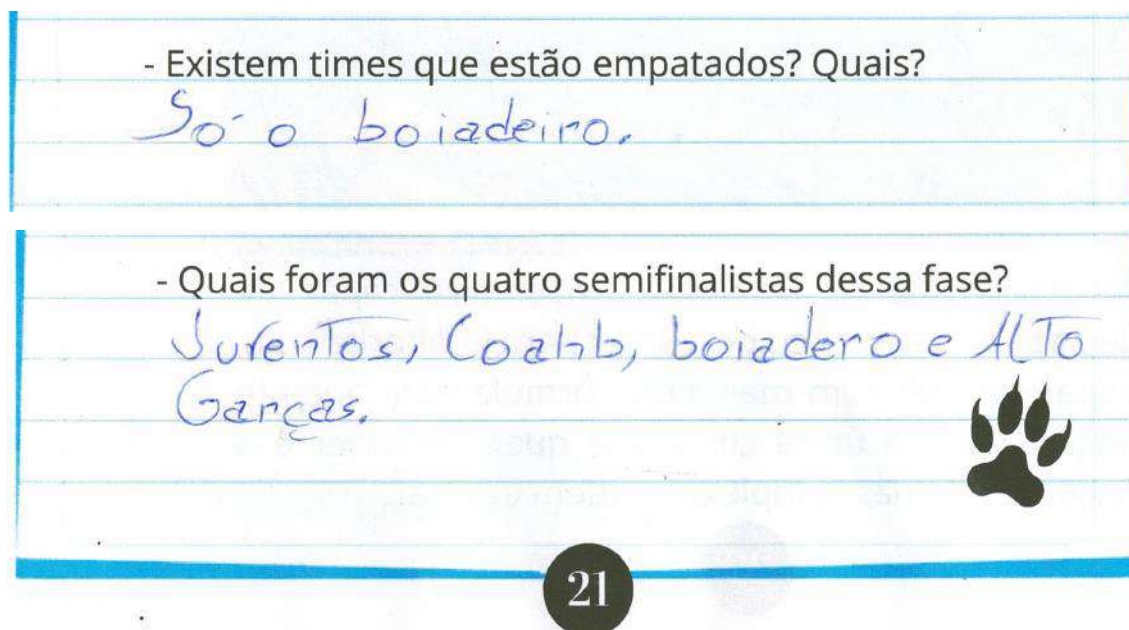 - Existem times que estão empatados? Quais?
Só o boiadeiro.
- Quais foram os quatro semifinalistas dessa fase?
Juventos, Coahb, boiadero e ALTO
Garças.
21